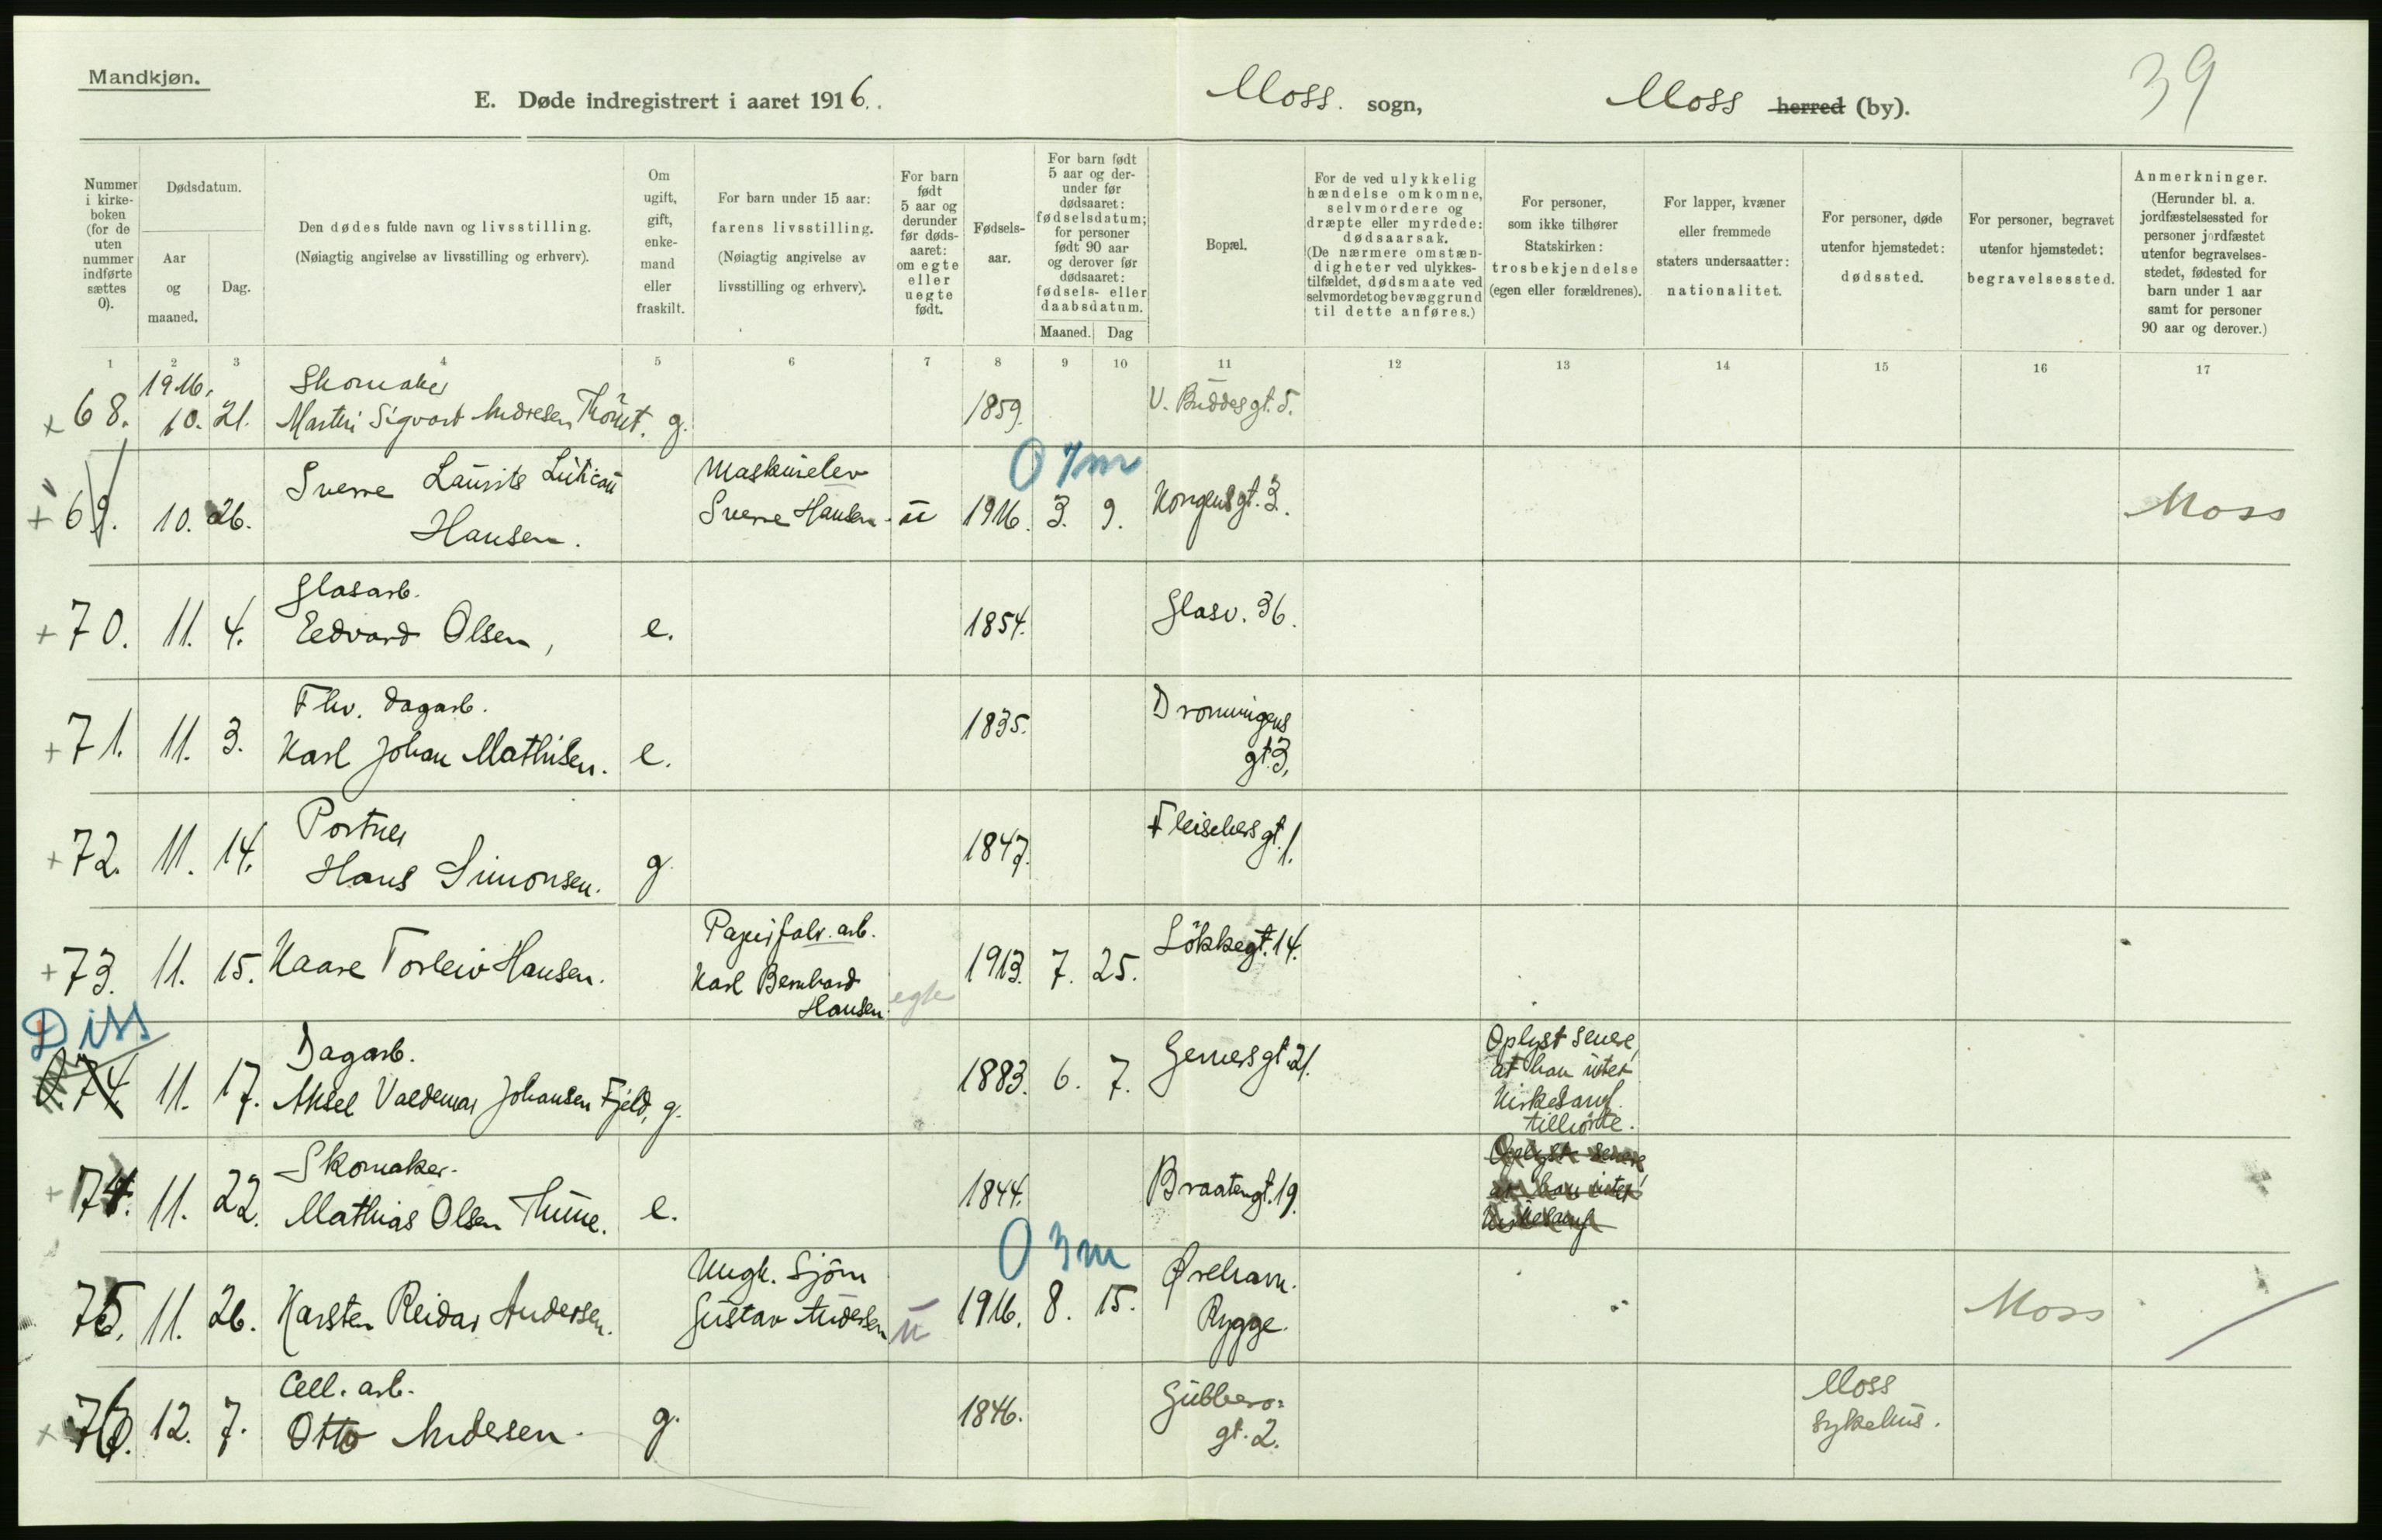 Mandkjøn.
E. Døde indregistrert i aaret 1916.
Moss. sogn,
Moss herred (by).
39
Nummer i kirkeboken (for de uten nummer indførte sættes 0).
Dødsdatum.
Aar og maaned.
Dag.
Den dødes fulde navn og livsstilling.
(Nøiagtig angivelse av livsstilling og erhverv).
Om ugift, gift, enkemand eller fraskilt.
For barn under 15 aar:
farens livsstilling.
(Nøiagtig angivelse av livsstilling og erhverv).
For barn født 5 aar og derunder før dødsaaret: om egte eller uegte født.
Fødselsaar.
For barn født 5 aar og derunder før dødsaaret: fødselsdatum; for personer født 90 aar og derover før dødsaaret: fødsels- eller daabsdatum.
Maaned. Dag
Bopæl.
For de ved ulykkelig hændelse omkomne, selvmordere og dræpte eller myrdede: dødsaarsak.
(De nærmere omstændigheter ved ulykkestilfældet, dødsmaate ved selvmordet og bevæggrund til dette anføres.)
For personer, som ikke tilhører Statskirken: trosbekjendelse (egen eller forældrenes).
For lapper, kvæner eller fremmede staters undersaatter: nationalitet.
For personer, døde utenfor hjemstedet: dødssted.
For personer, begravet utenfor hjemstedet: begravelsessted.
Anmerkninger.
(Herunder bl. a. jordfæstelsessted for personer jordfæstet utenfor begravelsesstedet, fødested for barn under 1 aar samt for personer 90 aar og derover.)
1 2 3 4 5 6 7 8 9 10 11 12 13 14 15 16 17
1916.
Skomaker
+ 68. 10. 21. Martin Sigvart Andresen g. 1859. V. Buddesgt. 5.
0 7m
Maskinelev
+ 69. 10. 26. Sverre Laurits Hansen. Sverre Hansen. u 1916. 3. 9. Kongensgt. 3. Moss
Glasarb.
+ 70. 11. 4. Eedvard Olsen, e. 1854. Glasv. 36.
Fhv. dagarb.
+ 71. 11. 3. Karl Johan Mathisen. e. 1835. Dronningens gt. 3,
Portner
+ 72. 11. 14. Hans Simonsen. g. 1847. Fleischersgt. 1.
Papirfabr. arb.
+ 73. 11. 15. Kaare Torleiv Hansen. Karl Bernhard Hansen. egte 1913. 7. 25. Løkkegt. 14.
Diss
Dagarb.
74. 11. 17. Aksel Valdemar Johansen Fjeld, g. 1883. 6. 7. Gernersgt. 21. Oplyst senere, at han intet Kirkesamf. tilhørte.
Skomaker.
+ 74. 11. 22. Mathias Olsen Thune. e. 1844. Braatengt. 19. Oplyst senere, at han intet Kirkesamf
0 3m
Ungk. Sjøm
75. 11. 26. Karsten Reidar Andersen. Gustav Andersen u 1916. 8. 15. Ørehavn. Rygge. Moss
Cell. arb.
+ 76. 12. 7. Otto Andersen. g. 1846. Gubbero: gt. 2. Moss Sykehus.